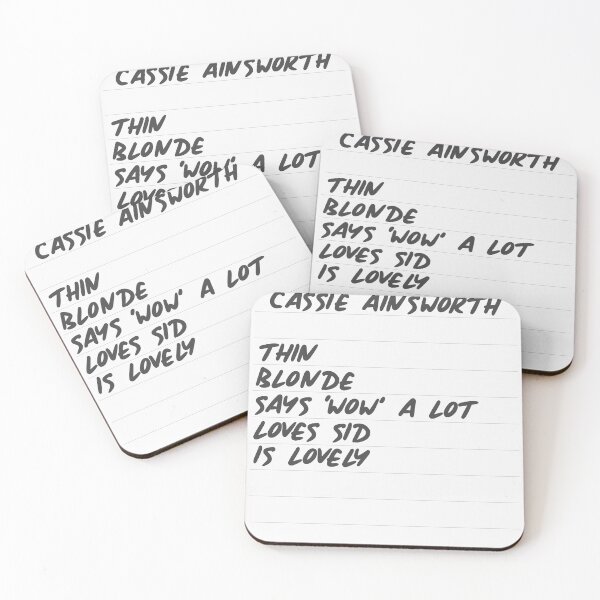 CASSIE AINSWORTH
THIN
BLONDE
SAYS 'WOW' A LOT
LOVE
CASSIE AINSWORTH
THIN
BLONDE
SAYS 'WOW' A LOT
LOVES SID
IS LOVELY
CASSIE AINSWORTH
THIN
BLONDE
SAYS 'WOW' A LOT
LOVES SID
IS LOVELY
CASSIE AINSWORTH
THIN
BLONDE
SAYS 'WOW' A LOT
LOVES SID
IS LOVELY